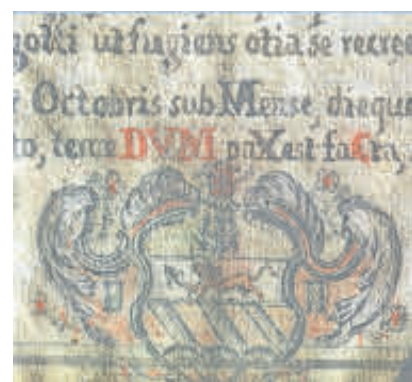 ut fugiens otia se recree
Octobris sub Mense, dieque
to, DVM paX est faCta,